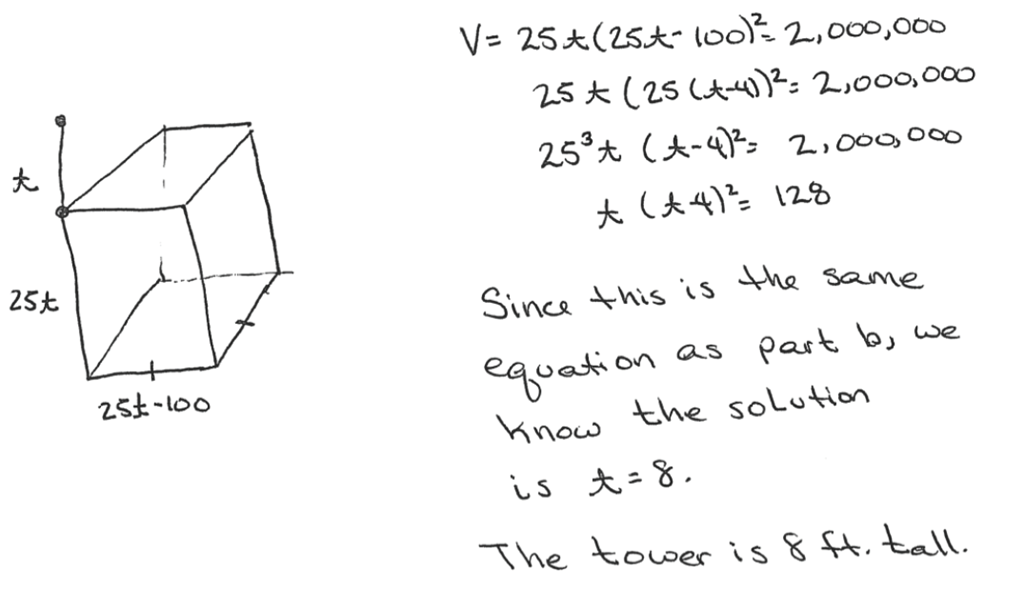 t
25t
25t-100
V= 25t(25t-100)²= 2,000,000
25t(25(t-4))²= 2,000,000
25³t (t-4)²= 2,000,000
t (t-4)²= 128
Since this is the same
equation as part b, we
know the solution
is t=8.
The tower is 8 ft. tall.